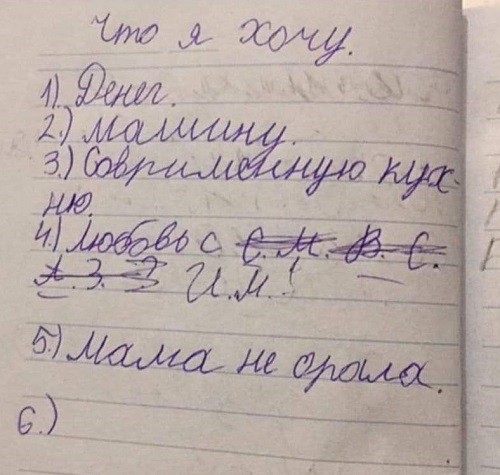 Что я хочу.
1). Денег.
2.) машину.
3.) Современную кух-
ню.
4.) любовь с С. М. В. С.
А. З. И.М.!
5.) Мама не орала.
6.)